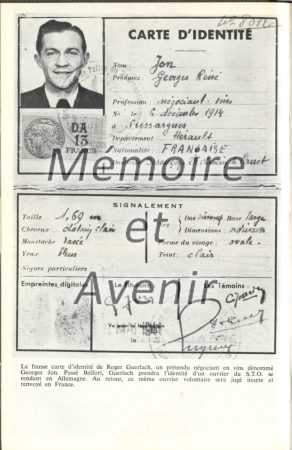 CARTE D'IDENTITÉ
Nom Jon
Prénoms Georges René
Profession négociant-vins
Né le 6 décembre 1914
à Sussargues
Département Hérault
Nationalité FRANÇAISE
DA
13
FRANCS
Mémoire
et
Avenir
SIGNALEMENT
Taille 1,69 m
Cheveux châtain clair
Moustache rasée
Yeux bleus
Signes particuliers
Nez
Dos sinueux Base large
Dimensions
Forme du visage ovale
Teint clair
Empreintes digitales
Le titulaire
Les Témoins :
La fausse carte d'identité de Roger Guerlach, un prétendu négociant en vins dénommé
Georges Jon. Passé Belfort, Guerlach prendra l'identité d'un ouvrier du S.T.O. se
rendant en Allemagne. Au retour, ce même ouvrier volontaire sera jugé inapte et
renvoyé en France.